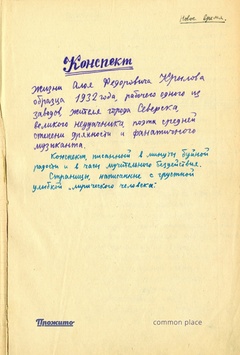 Новое время.
Конспект
жизни Алья Федоровича Крылова
образца 1932 года, рабочего одного из
заводов, жителя города Северска,
великого неудачника, поэта средней
степени дрянности и фанатичного
музыканта.
Конспект, писанный в минуты буйной
радости и в часы мучительного бездействия.
Страницы, написанные с грустной
улыбкой „лирического человека“.
Прожито
common place